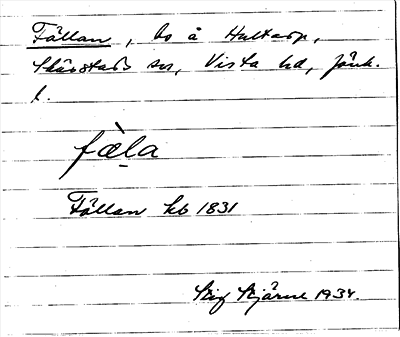 Fällan, to å Hultarp,
Skärstads sn, Vista hd, Jönk.
l.
fä̀la
Fällan kb 1831
Stig Stjärne 1934.